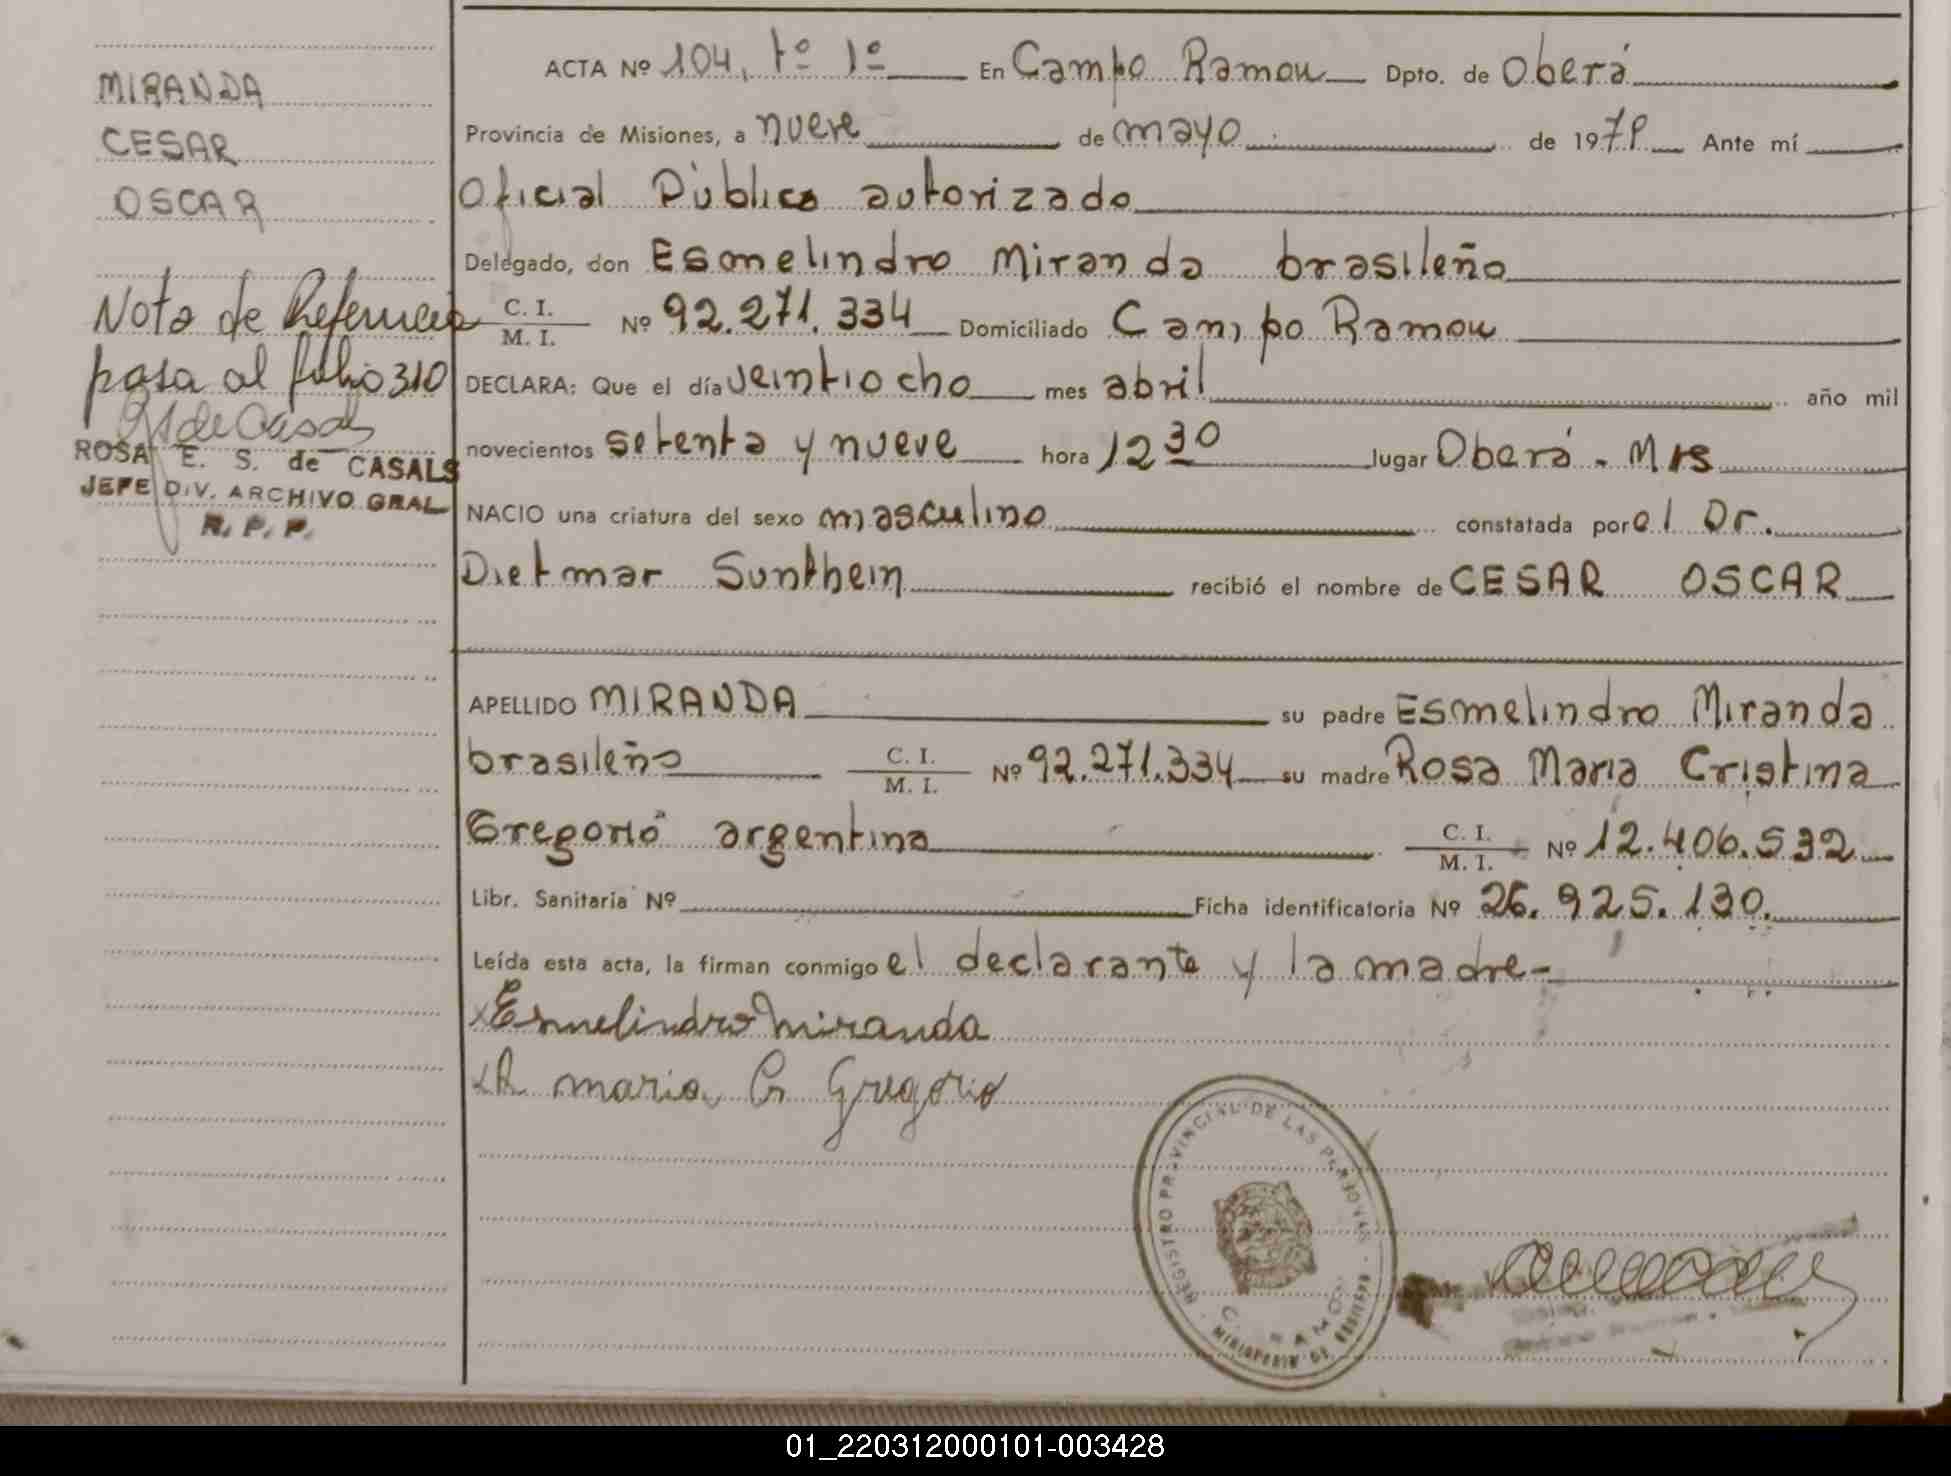 MIRANDA
CESAR
OSCAR
Nota de Referencia
pasa al folio 310
ROSA E. S. de CASALS
JEFE DIV. ARCHIVO GRAL
R. P. P.
ACTA Nº 104, tº 1º En Campo Ramon Dpto. de Oberá
Provincia de Misiones, a nueve de mayo de 1979 Ante mí
Oficial Público autorizado
Delegado, don Esmelindro Miranda brasileño
C. I. / M. I. Nº 92.271.334 Domiciliado Campo Ramon
DECLARA: Que el día veintiocho mes abril año mil
novecientos setenta y nueve hora 12 30 lugar Oberá - Mis
NACIO una criatura del sexo masculino constatada por el Dr.
Dietmar Sunthein recibió el nombre de CESAR OSCAR
APELLIDO MIRANDA su padre Esmelindro Miranda
brasileño C. I. / M. I. Nº 92.271.334 su madre Rosa Maria Cristina
Gregorio argentina C. I. / M. I. Nº 12.406.532
Libr. Sanitaria Nº Ficha identificatoria Nº 26.925.130.
Leída esta acta, la firman conmigo el declarante y la madre-
x Esmelindro Miranda
x R maria Cr Gregorio
REGISTRO PROVINCIAL DE LAS PERSONAS
MINISTERIO DE GOBIERNO
01_220312000101-003428